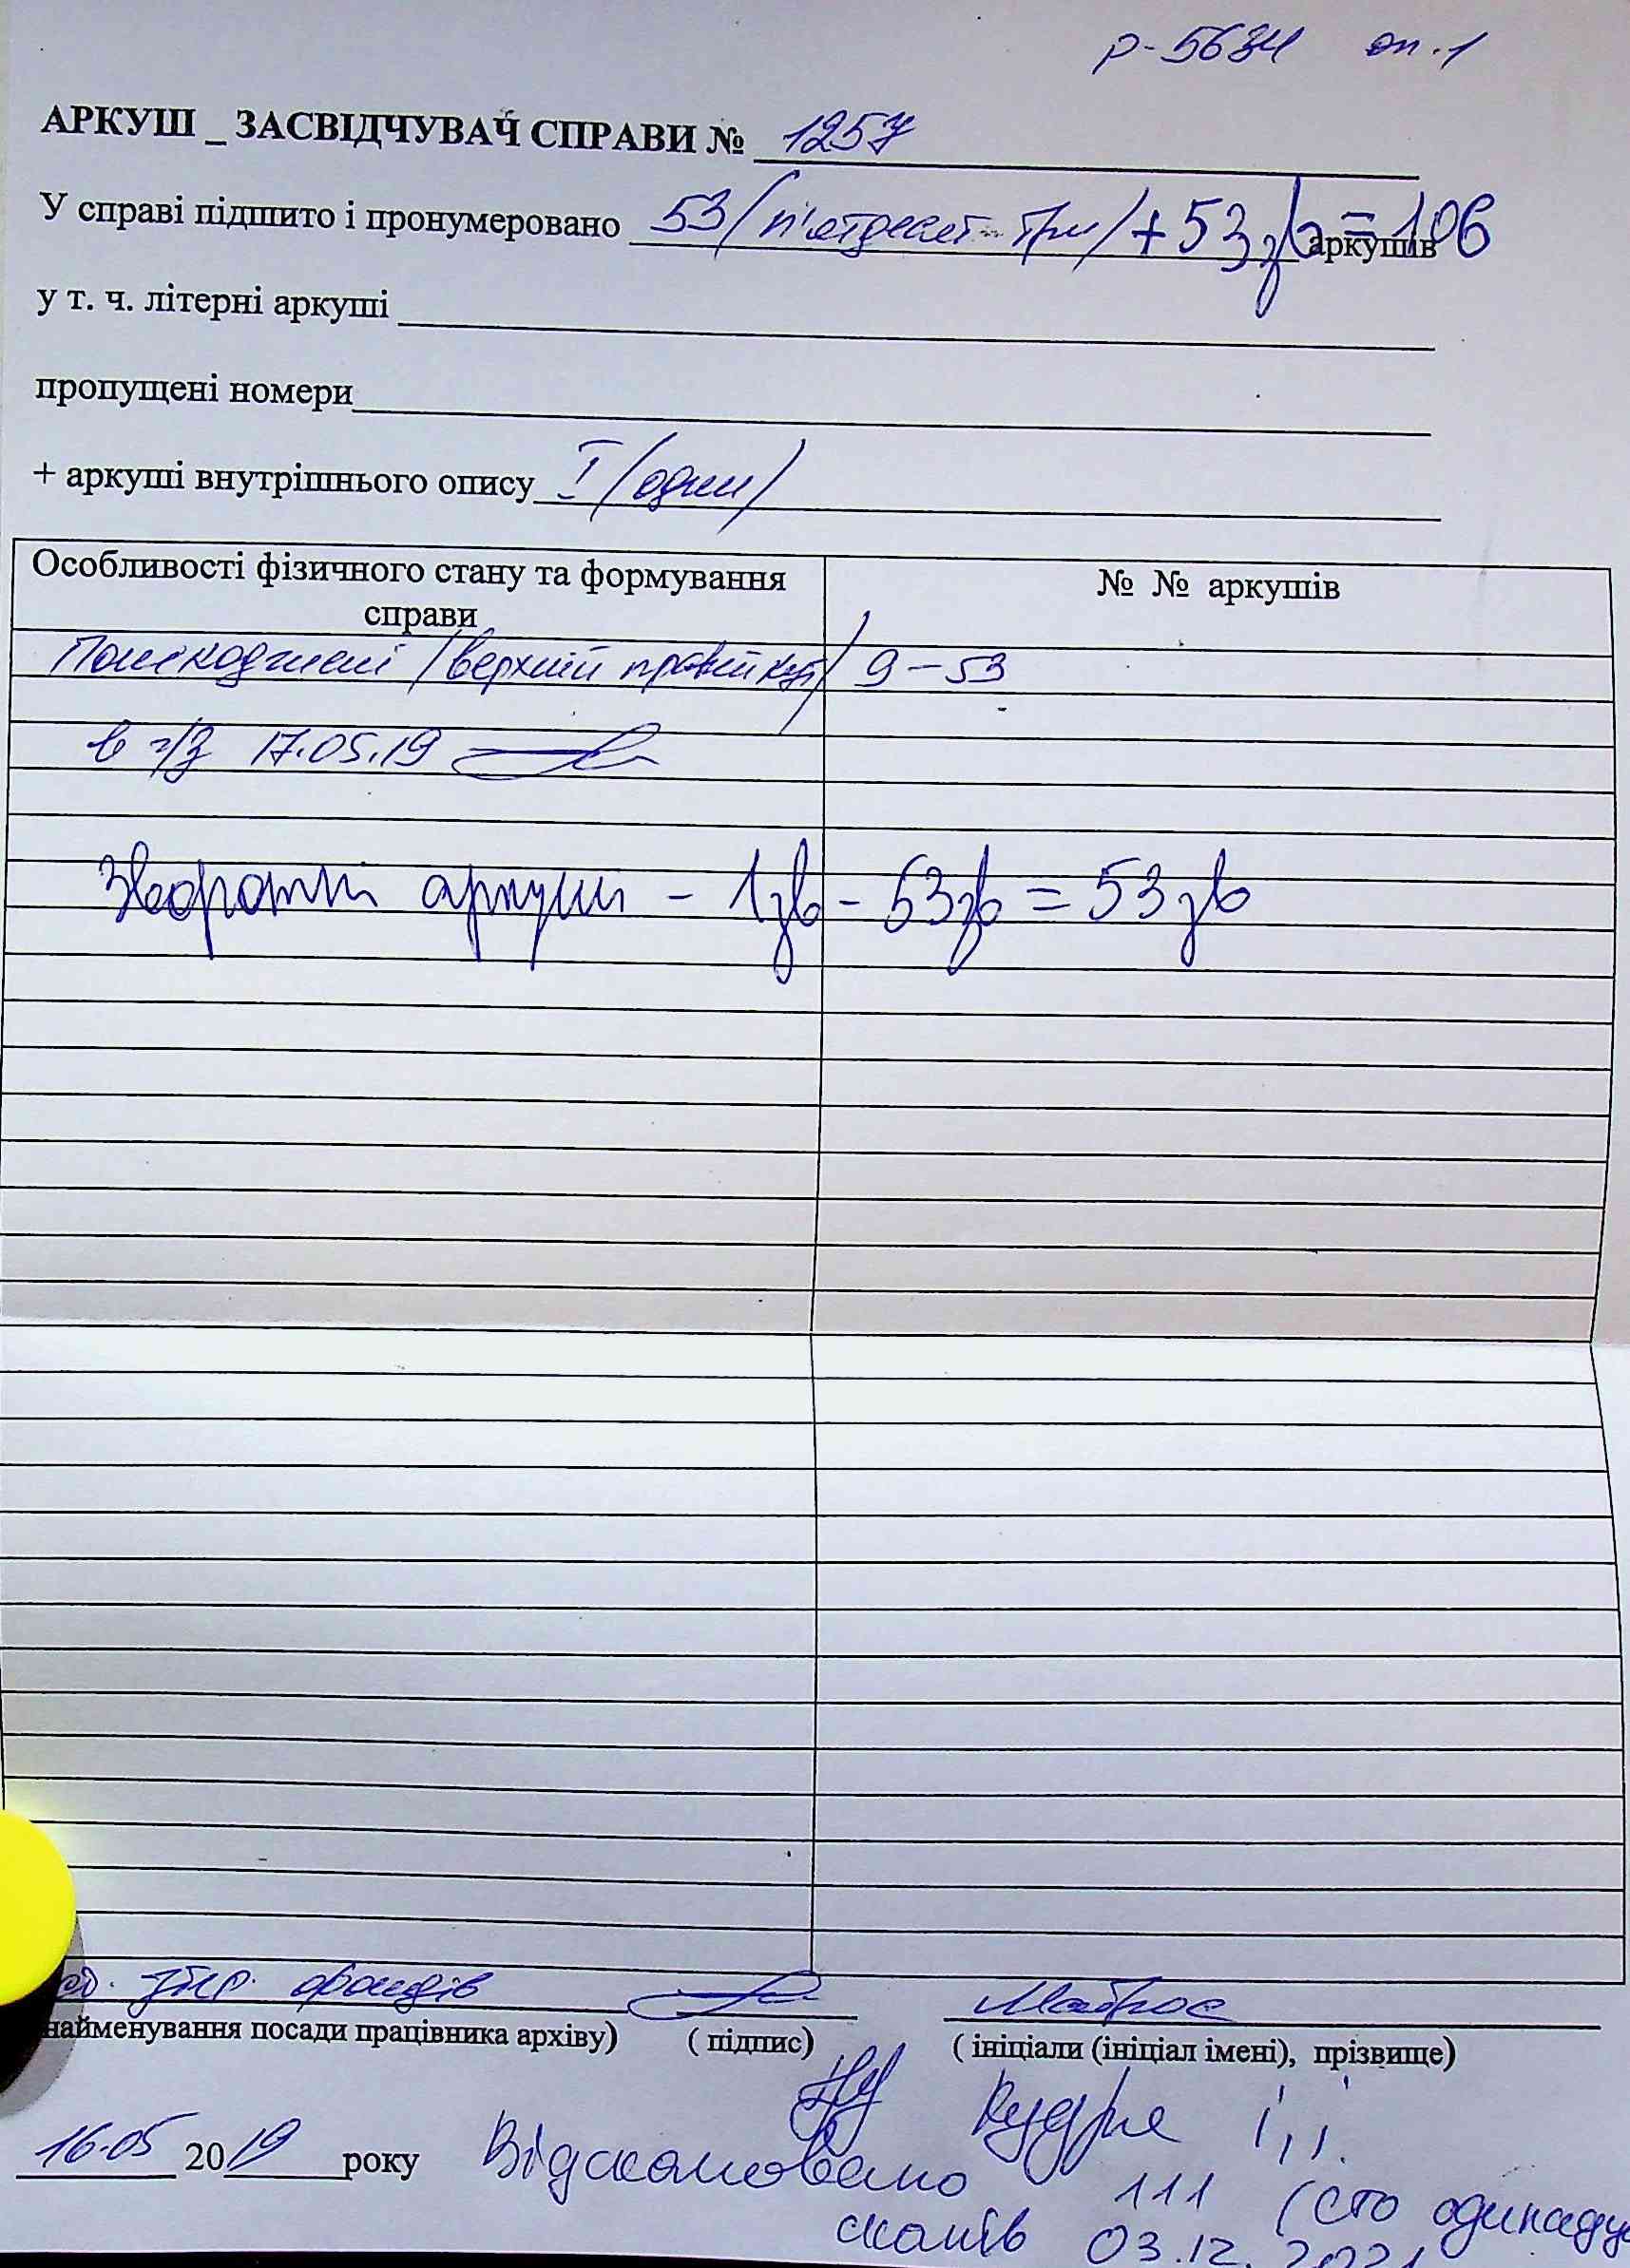 Р-5634 оп.1
АРКУШ _ ЗАСВІДЧУВАЧ СПРАВИ № 1257
У справі підшито і пронумеровано 53 /п'ятдесят три/ + 53 зв = 106 аркушів
у т. ч. літерні аркуші
пропущені номери
+ аркуші внутрішнього опису I /один/
Особливості фізичного стану та формування справи
№ № аркушів
Пошкоджені /верхній правий кут/ 9 – 53
в ч/з 17.05.19
Зворотні аркуші – 1зв – 53зв = 53 зв
фондів
Матрос
найменування посади працівника архіву)
( підпис)
( ініціали (ініціал імені), прізвище)
Кудря І.І.
16.05 2019 року
Відскановано 111 (сто одинадц
сканів 03.12. 2021